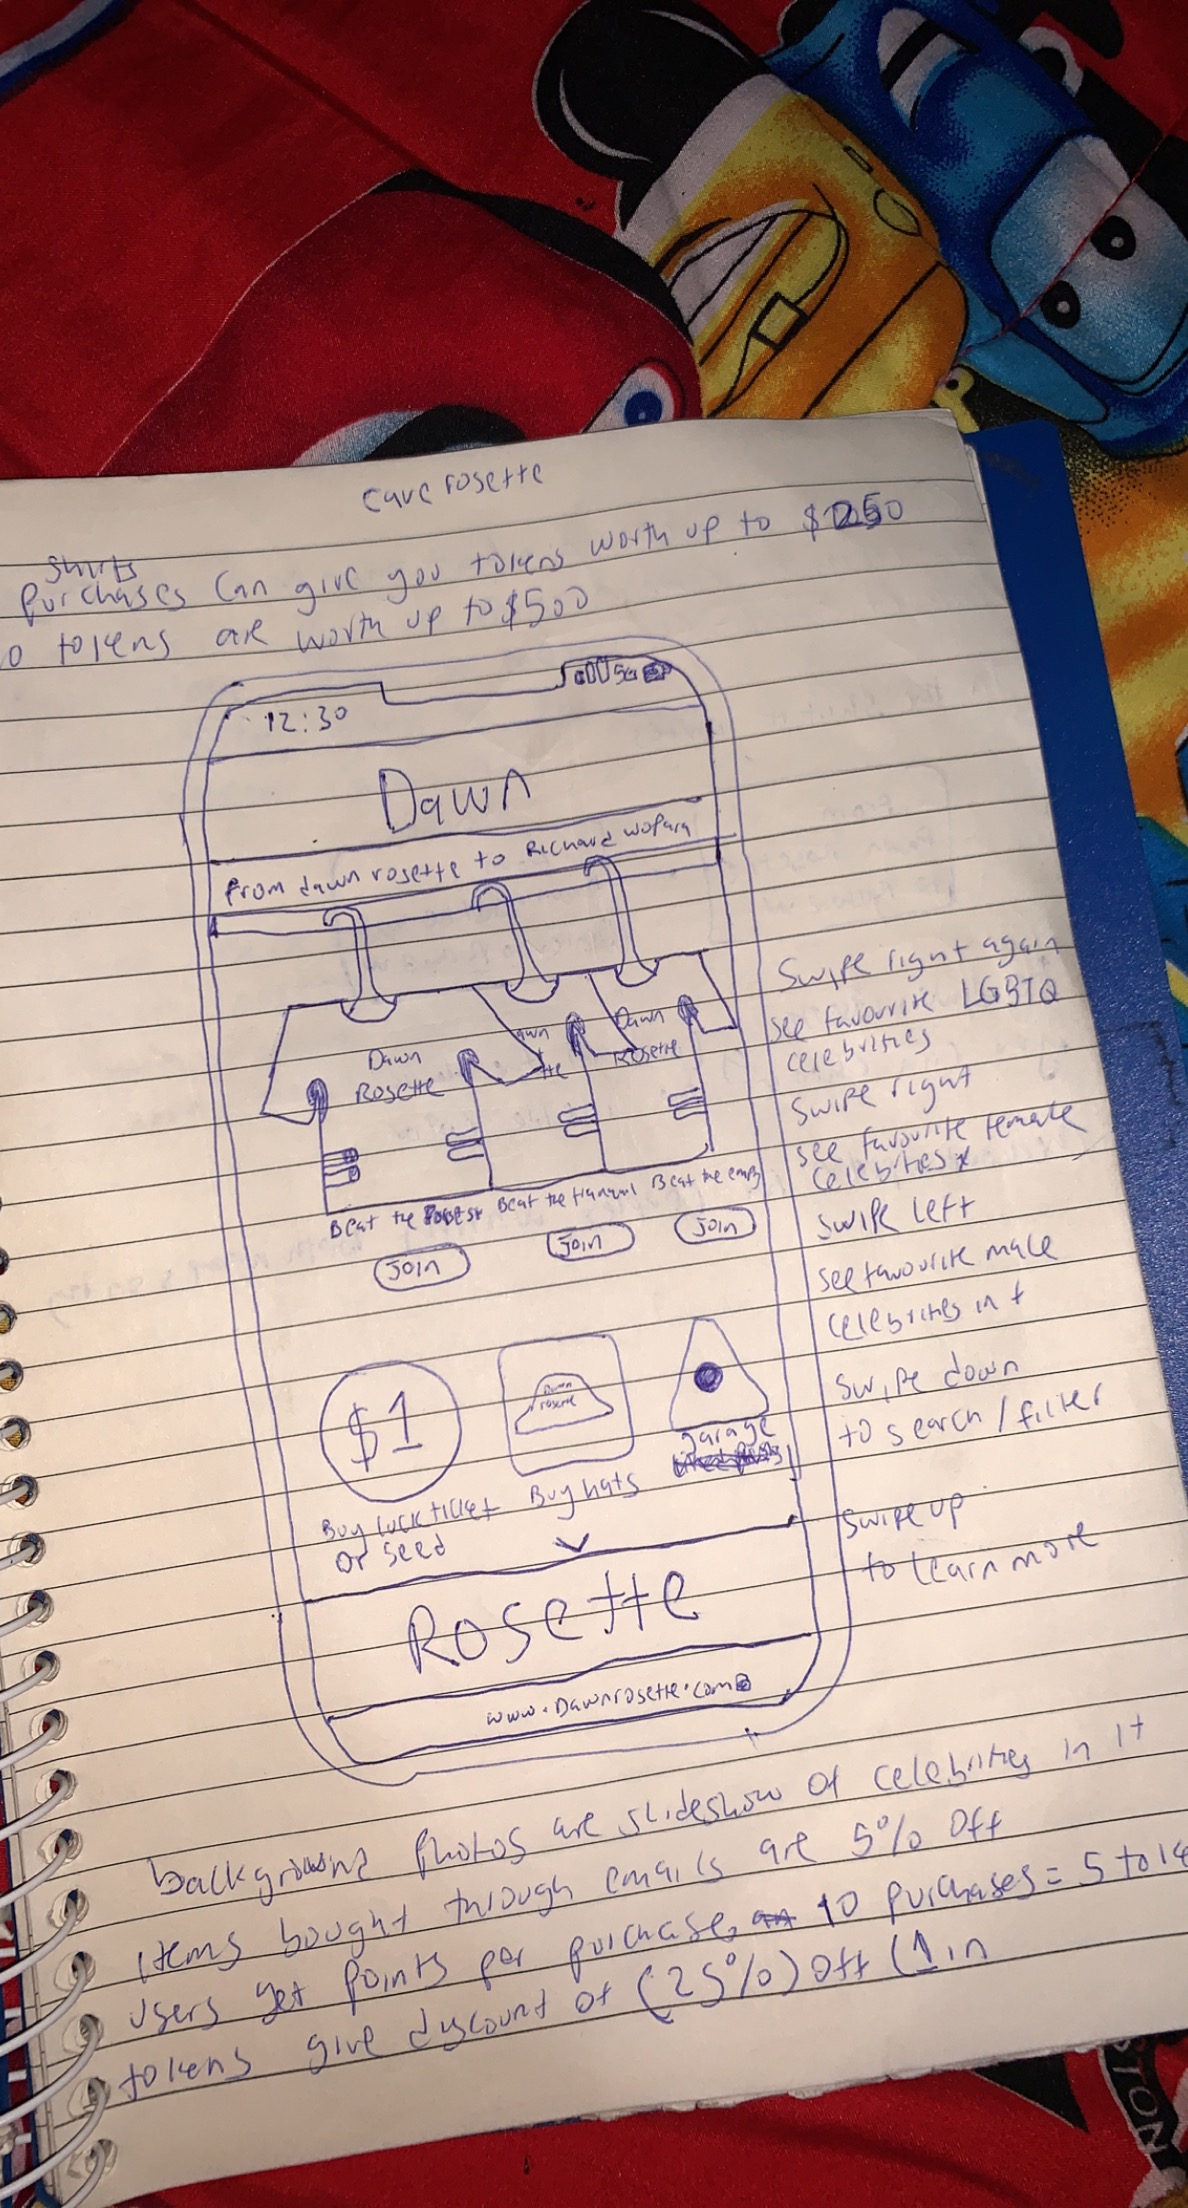 cave rosette
shirts
purchases can give you tokens worth up to $250
0 tokens are worth up to $500
12:30
5G
Dawn
From dawn rosette to Richard Wofara
Dawn
Rosette
awn
tte
Dawn
Rosette
Beat the
Beat the tranquil
Beat the empy
Join
Join
Join
$1
Dawn
rosette
garage
Buy luck ticket
or seed
Buy hats
Rosette
www.Dawnrosette.com
Swipe right again
see favourite LGBTQ
celebrities
Swipe right
see favourite female
celebrities
Swipe left
see favourite male
celebrities in t
Swipe down
to search/filter
Swipe up
to learn more
background photos are slideshow of celebrities in it
items bought through emails are 5% off
users get points per purchase, 10 purchases = 5 toke
tokens give discount of (25%) off (1 in
STON